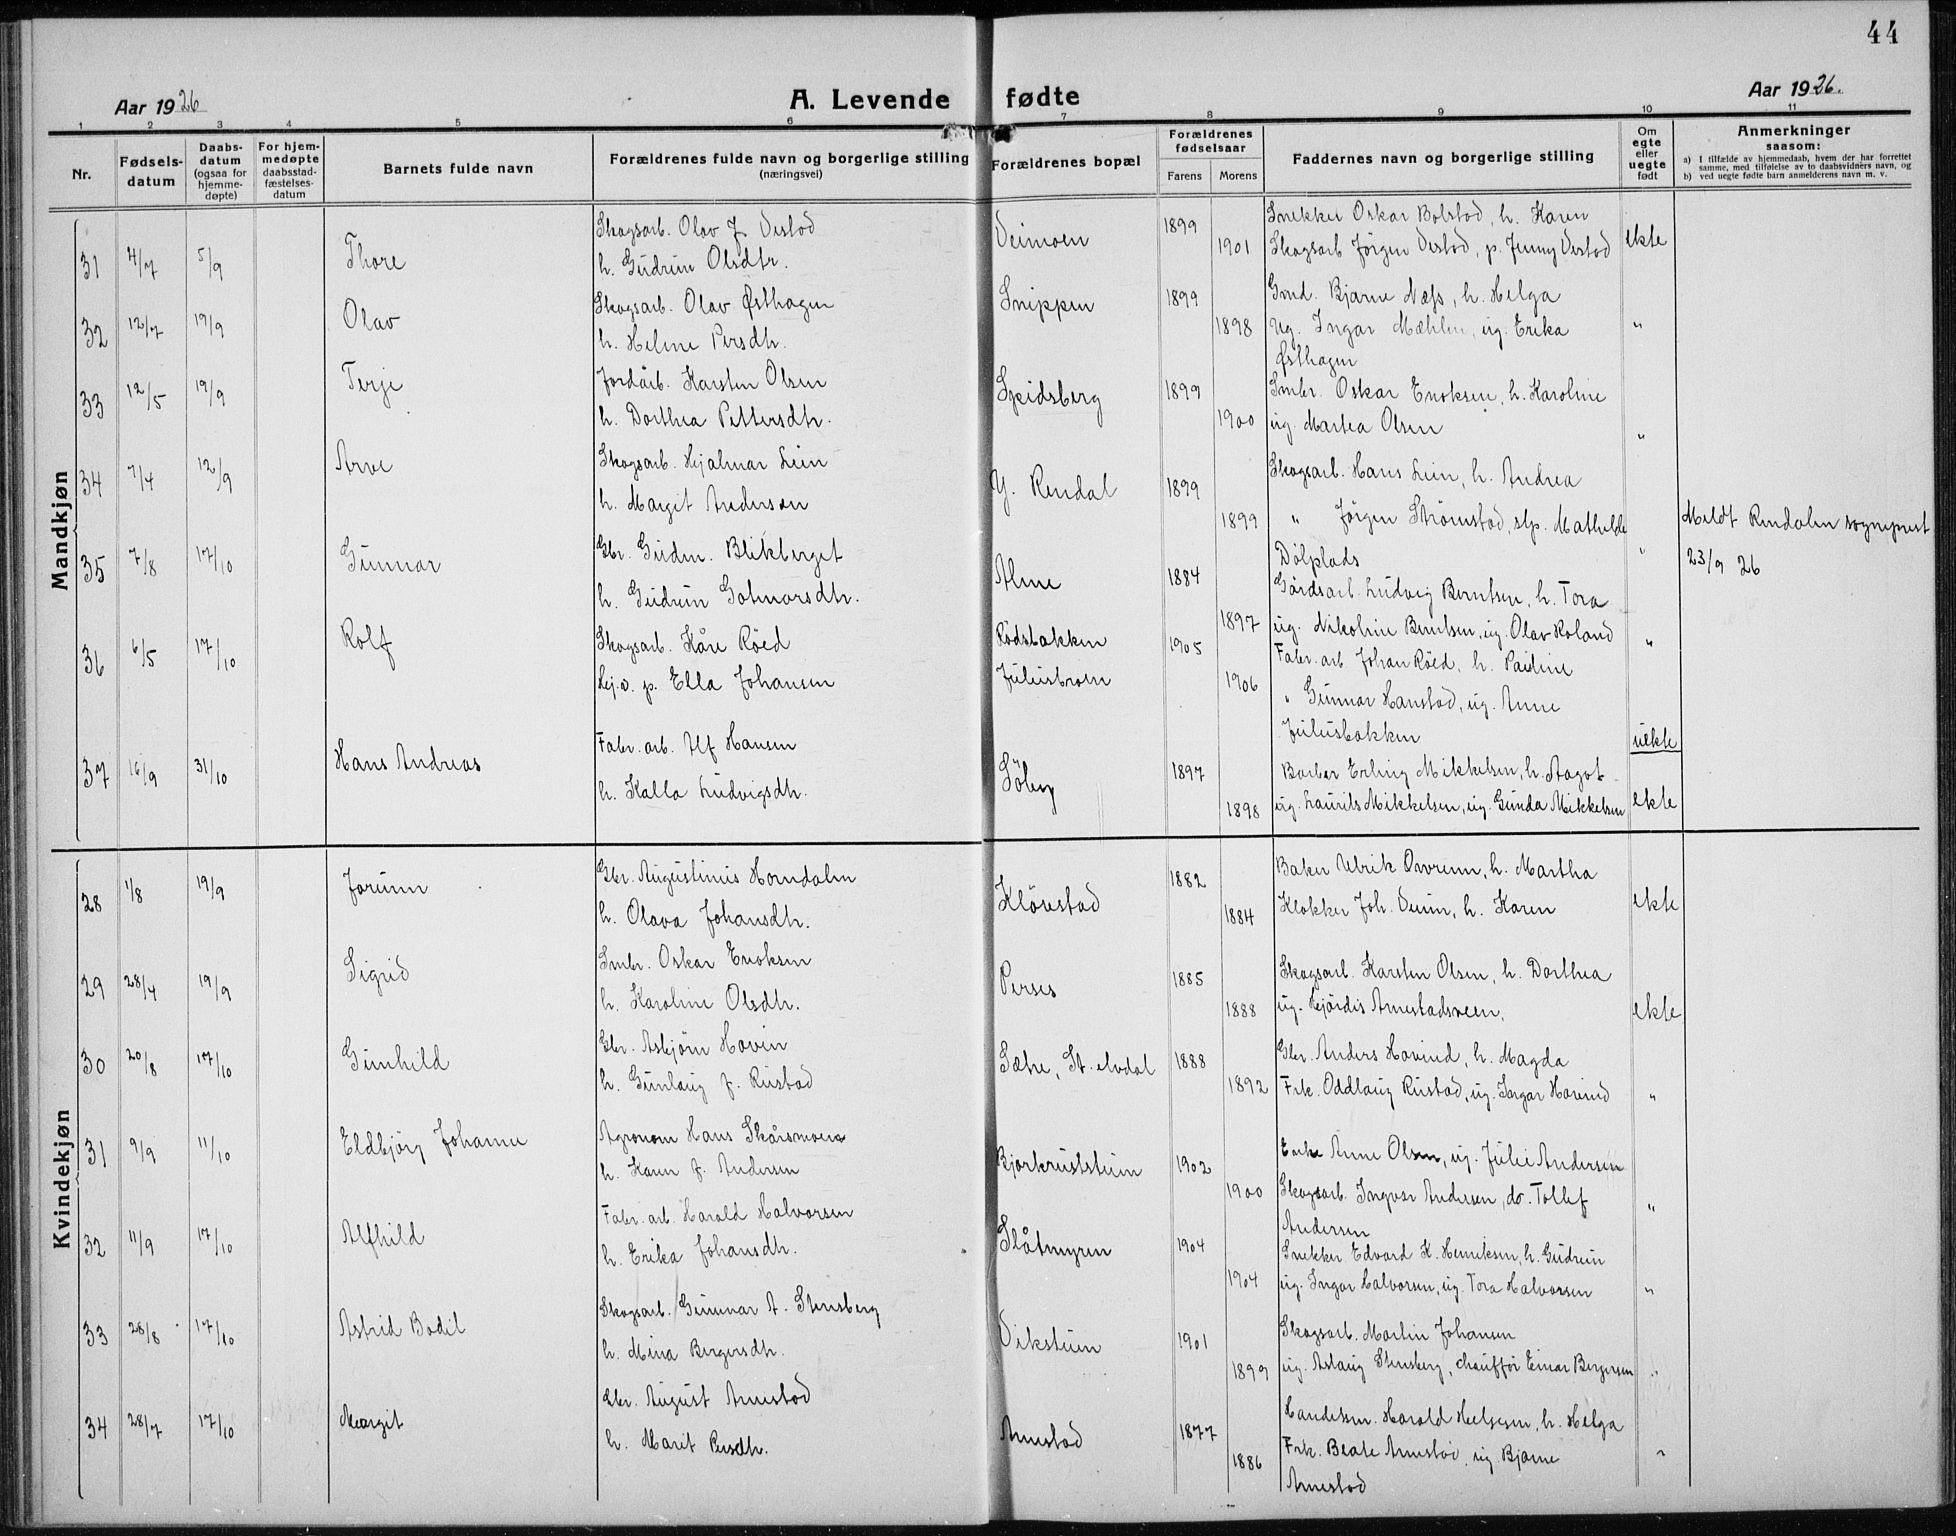 44
Aar 1926
A. Levende fødte
Aar 1926.
1 2 3 4 5 6 7 8 9 10 11
Nr.
Fødsels-
datum
Daabs-
datum
(ogsaa for
hjemme-
døpte)
For hjem-
medøpte
daabsstad-
fæstelses-
datum
Barnets fulde navn
Forældrenes fulde navn og borgerlige stilling
(næringsvei)
Forældrenes bopæl
Forældrenes
fødselsaar
Farens Morens
Faddernes navn og borgerlige stilling
Om
egte
eller
uegte
født
Anmerkninger
saasom:
a) I tilfælde av hjemmedaab, hvem der har forrettet
samme, med tilføielse av to daabsvidners navn, og
b) ved uegte fødte barn anmelderens navn m. v.
Mandkjøn
31 4/7 5/9 Thore Skogsarb. Olav J. Vestad Veimoen 1899 Snekker Oskar Bolstad, h. Karen ekte
h. Gudrun Olsdtr. 1901 Skogsarb Jörgen Vestad, p. Jenny Vestad
32 12/7 19/9 Olav Skogsarb. Olav Østhagen Snippen 1899 Grnd. Bjarne Næss, h. Helga
h. Helene Persdtr. 1898 Ug. Ingar Mæhlen, ug. Erika "
Østhagen
33 12/5 19/9 Terje Jordarb. Karsten Olsen Speidsberg 1899 Smbr. Oskar Enoksen, h. Karoline
h. Dorthea Pettersdtr. 1900 ug. Martea Olsen "
34 7/4 12/9 Arve Skogsarb. Hjalmar Lien Y. Rendal 1899 Skogsarb. Hans Lien, h. Andrea
h. Margit Andersen 1899 " Jörgen Strömstad, slp. Mathilde Meldt Rendalen sogneprest
Dölplads " 23/9 26
35 7/8 17/10 Gunnar Gbr. Gudm. Blikberget Alme 1884 Gårdsarb. Ludvig Berntsen, h. Tora
h. Gudrun Gotmarsdtr. 1897 ug. Nikoline Berntsen, ug. Olav Roland "
36 6/5 17/10 Rolf Skogsarb. Kåre Röed Rödsbakken 1905 Fabr. arb. Johan Röed, h. Pauline
p. Ella Johansen Juliusbroen 1906 " Gunnar Hanstad, ug. Anne
Juliusbakken uekte
37 16/9 31/10 Hans Andreas Fabr. arb. Alf Hansen Söby 1897 Barber Erling Mikkelsen, h. Aagot
h. Kalla Ludvigsdtr. 1898 ug. Laurits Mikkelsen, ug. Gunda Mikkelsen ekte
Kvindekjøn
28 1/8 19/9 Jorunn Gbr. Augustinus Horndalen Klövstad 1882 Baker Ulrik Ovrenn, h. Martha ekte
h. Olava Johansdtr. 1884 Klokker Joh. Veum, h. Karen
29 28/4 19/9 Sigrid Smbr. Oskar Enoksen Perses 1885 Skogsarb. Karsten Olsen, h. Dorthea
h. Karoline Olsdtr. 1888 ug. Hjördis Arnestadsveen, ekte
30 20/8 17/10 Gunhild Gbr. Asbjörn Hovin Sætre, St. elvdal 1888 Gbr. Anders Hovind, h. Magda
h. Gunlaug f. Rustad 1892 Frk. Oddlaug Rustad, ug. Ingar Hovind "
31 9/9 11/10 Eldbjörg Johanne Agronom Hans Skårsmoen Bjørkerustsheim 1902 Enke Anne Olsen, ug. Julie Andersen
h. Karen f. Andersen 1900 Skogsarb. Ingvar Andersen, do. Tollef "
Andersen
32 11/9 17/10 Alfhild Fabr. arb. Harald Halvorsen Slåtmyren 1904 Snekker Edvard K. Henriksen, h. Gudrun
h. Erika Johansdtr. 1904 ug. Ingar Halvorsen, ug. Tora Halvorsen "
33 28/8 17/10 Astrid Bodil Skogsarb. Gunnar A. Stensberg Vikstuen 1901 Skogsarb. Martin Johansen
h. Mina Bergersdtr. 1899 ug. Aslaug Stensberg, chauffør Einar Bergersen "
34 28/7 17/10 Margit Gbr. August Arnestad Arnestad 1877 Handelsm. Harald Helgesen, h. Helga
h. Marit Persdtr. 1886 Frk. Beate Arnestad, ug. Bjarne "
Arnestad